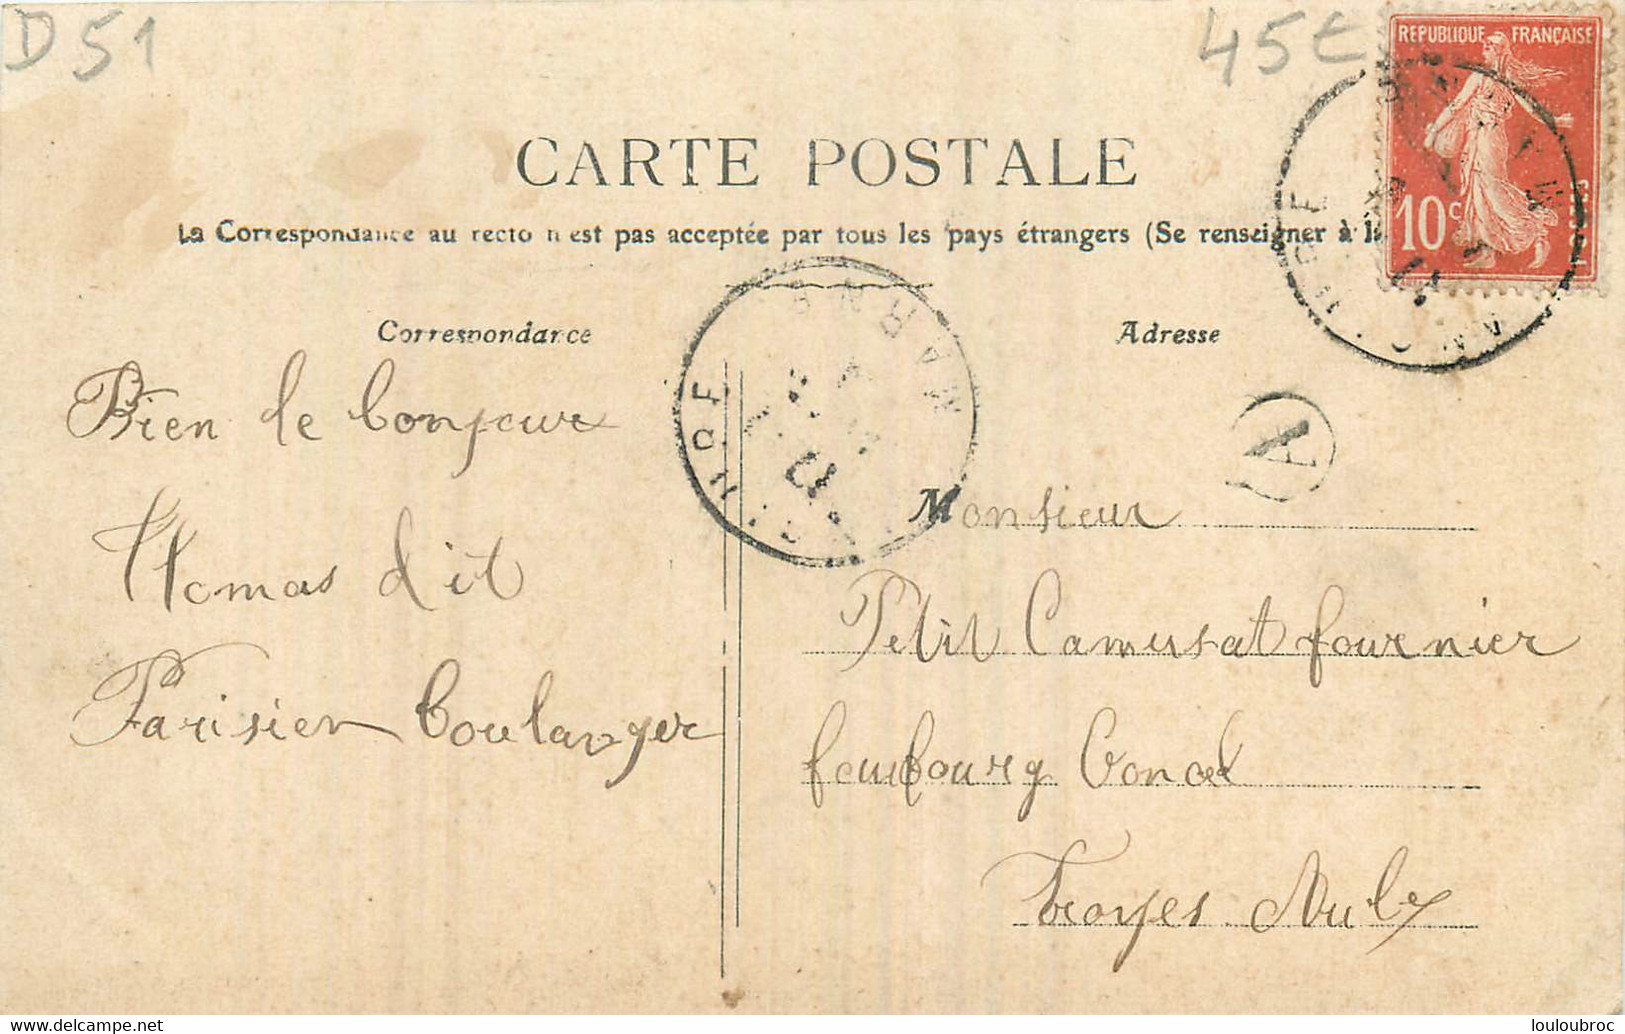 D 51
45€
REPUBLIQUE FRANÇAISE
10c
CARTE POSTALE
La Correspondance au recto n'est pas acceptée par tous les pays étrangers (Se renseigner à la
Correspondance
Adresse
MARNE
A
Bien le bonjour
Thomas dit
Parisien boulanger
Monsieur
Petit Camusat fournier
foubourg
Troyes Aube
DELCAMPE.net
louloubroc